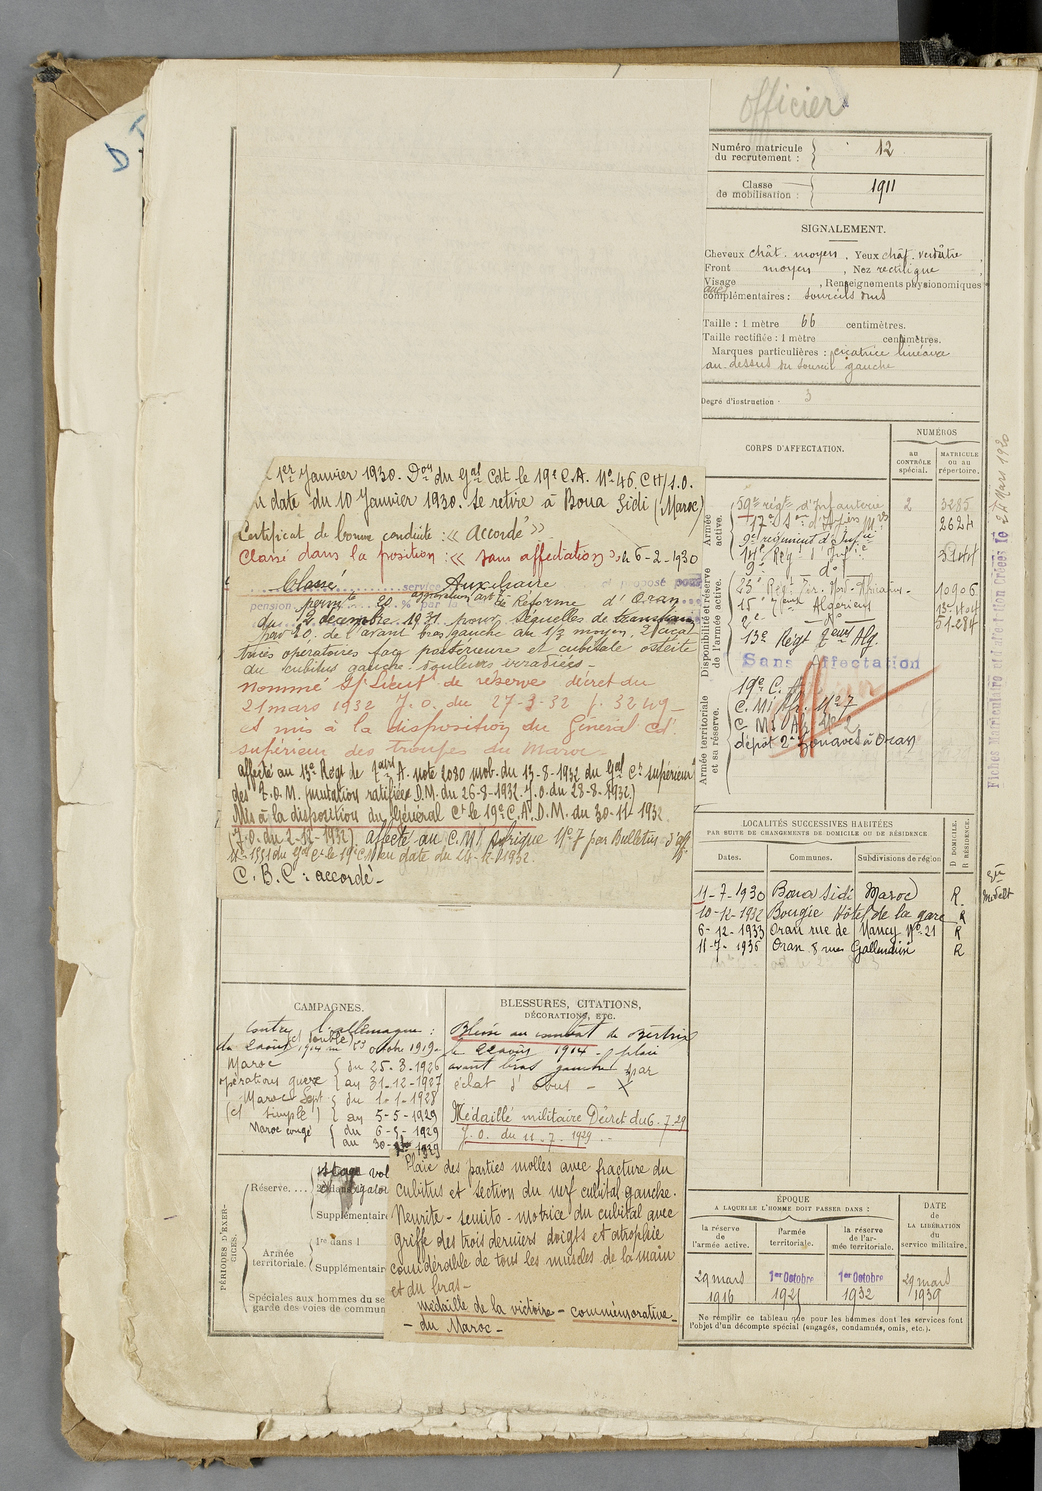 officier
Numéro matricule
du recrutement :
12
Classe
de mobilisation :
1911
SIGNALEMENT.
Cheveux chât. moyen. Yeux chât. verdâtre
Front moyen, Nez rectiligne
Visage , Renseignements physionomiques
complémentaires : sourcils drus
Taille : 1 mètre 66 centimètres.
Taille rectifiée : 1 mètre centimètres.
Marques particulières : cicatrice linéaire
au-dessus du sourcil gauche
Degré d'instruction : 3
CORPS D'AFFECTATION.
NUMÉROS
au
CONTRÔLE
spécial.
MATRICULE
ou au
répertoire.
Armée
active.
59e régt d'Infanterie 2 3285
2624
9e régiment d'Infie
14e Rég
Disponibilité et réserve
de l'armée active.
10906
15e Algériens
13e Régt Alg.
Sans affectation
Armée territoriale
et sa réserve.
19e C. A.
C. M. Af. No 7
C. M. Af. No 2
dépôt 2e zouaves à Oran
27 Mars 1920
LOCALITÉS SUCCESSIVES HABITÉES
PAR SUITE DE CHANGEMENTS DE DOMICILE OU DE RÉSIDENCE
Dates.
Communes.
Subdivisions de région
D. DOMICILE.
R. RÉSIDENCE.
11-7-1930 Boua Sidi Maroc R.
10-12-1932 Bougie Hôtel de la gare R
6-12-1933 Oran rue de Nancy No 21 R
11-7-1936 Oran 8 rue R
ÉPOQUE
A LAQUELLE L'HOMME DOIT PASSER DANS :
DATE
de
LA LIBÉRATION
du
service militaire.
la réserve
de
l'armée active.
l'armée
territoriale.
la réserve
de l'ar-
mée territoriale.
29 mars
1916
1er Octobre
1921
1er Octobre
1932
29 mars
1939
Ne remplir ce tableau que pour les hommes dont les services font
l'objet d'un décompte spécial (engagés, condamnés, omis, etc.).
1er Janvier 1930. Don du Gal Cdt le 19e C.A. No 46. CH/1.0.
date du 10 Janvier 1930. Se retire à Boua Sidi (Maroc)
Certificat de bonne conduite : « Accordé »
Classé dans la position : « sans affectation » le 6-2-1930
Classé service Auxiliaire et proposé pour
pension permte 20 % par la Cie Réforme d'Oran
du 2 décembre 1931 pour séquelles de
de l'avant bras gauche au 1/3 moyen, 2 cicat
trices opératoires face postérieure et cubitale ostéite
du cubitus gauche. Douleurs irradiées -
Nommé S/Lieut de réserve décret du
21 mars 1932 J.O. du 27-3-32 p. 3249 -
et mis à la disposition du Général Cdt
supérieur des troupes du Maroc -
Affecté au 13e Régt de A. note 2030 mob. du 13-8-1932 du Gal Ct supérieur
des T.O.M. (mutation ratifiée D.M. du 26-8-1932. J.O. du 28-8-1932)
Mis à la disposition du Général Ct le 19e C.A. D.M. du 30-11-1932
J.O. du 2-12-1932) affecté au C.M. Afrique No 7 par Bulletin d'aff.
C. B. C : accordé -
CAMPAGNES.
contre l'allemagne :
(ct double)
du 2 août 1914 au octobre 1919 -
Maroc { du 25-3-1926
opérations guerre { au 31-12-1927
Maroc Sept { du 1-1-1928
(ct simple) { au 5-5-1929
Maroc congé { du 6-5-1929
BLESSURES, CITATIONS,
DÉCORATIONS, ETC.
Blessé au combat de Bertrix
le 22 août 1914 - plaie
avant bras gauche par
éclat d'obus -
Médaillé militaire Décret du 6-7-29
J.O. du 11-7-1929
PÉRIODES D'EXER-
CICES.
Réserve.
Supplémentaire
Armée
territoriale.
1re dans l
Supplémentaire
Spéciales aux hommes du se
garde des voies de commun
Plaie des parties molles avec fracture du
cubitus et section du nerf cubital gauche.
Neurite - sensito - motrice du cubital avec
griffe des trois derniers doigts et atrophie
considérable de tous les muscles de la main
et du bras -
médaille de la victoire - commémorative -
- du Maroc -